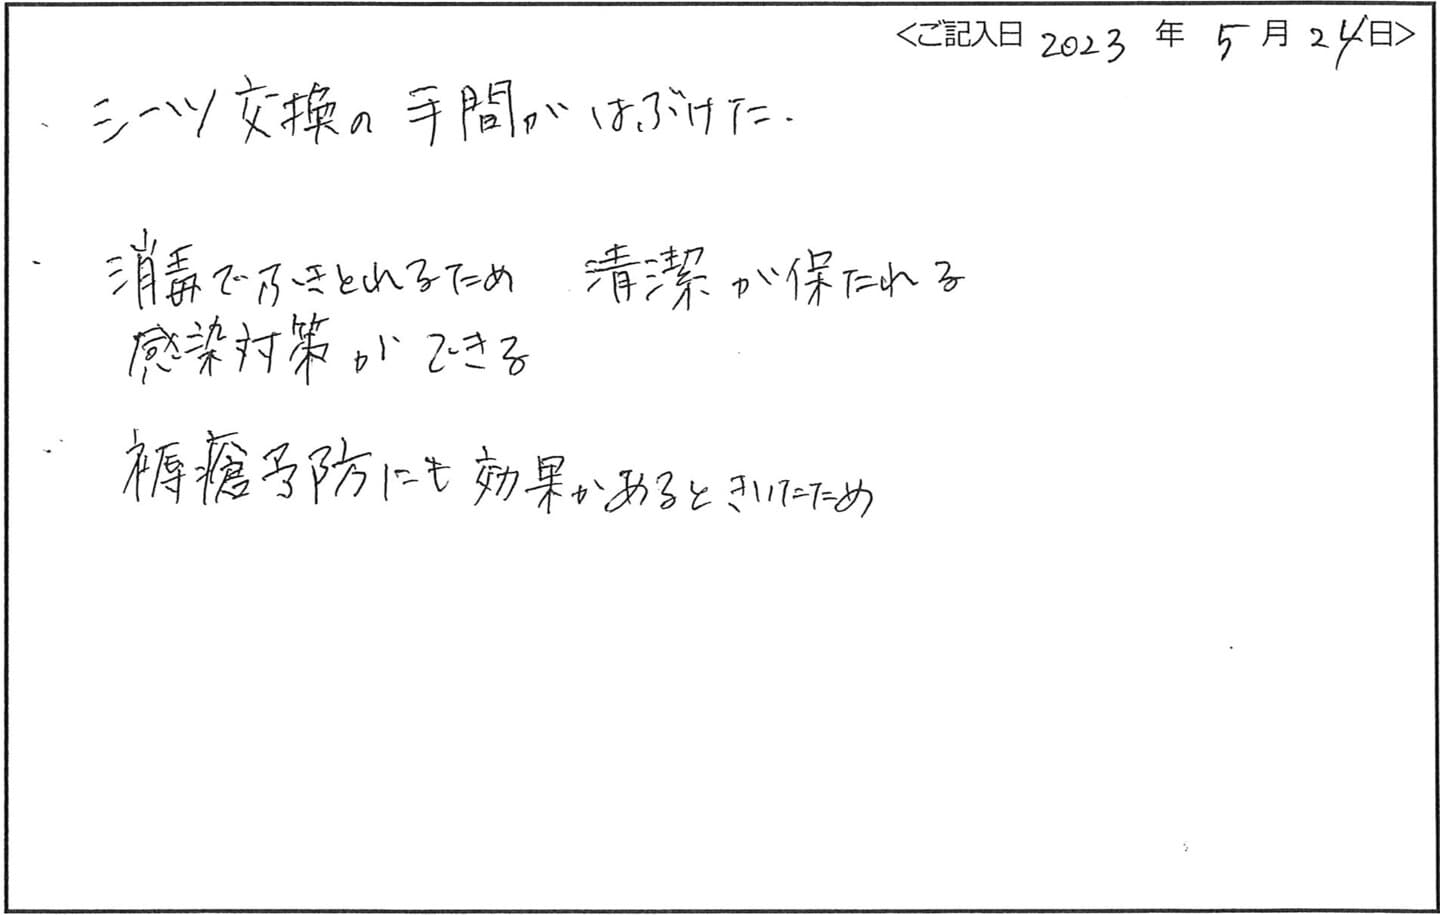 <ご記入日 2023 年 5 月 24日>
・ シーツ交換の 手間がはぶけた.
・ 消毒でふきとれるため 清潔が保たれる
感染対策ができる
・ 褥瘡予防にも効果があるときいたため